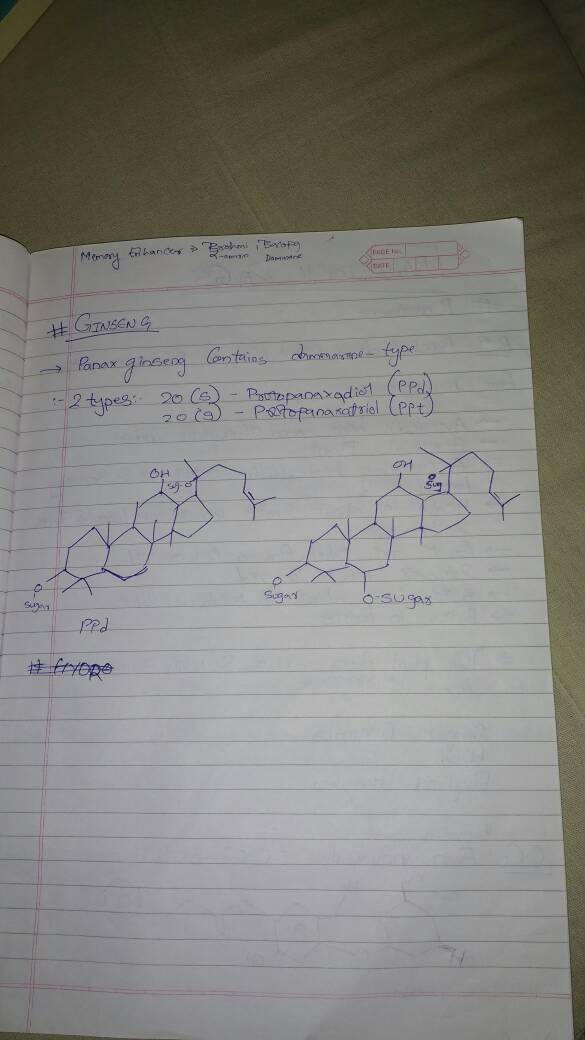 Memory Enhancer → Brahmi, Bacopa
α-amrin Damarane
PAGE No.
DATE
# GINSENG
→ Panax ginseng Contains dammarane-type
:- 2 types:- 20 (S) - Protopanaxadiol (PPd)
20 (S) - Protopanaxatriol (PPt)
OH
Sug-O
O
Sugar
PPd
OH
O
Sug
O
Sugar
O-Sugar